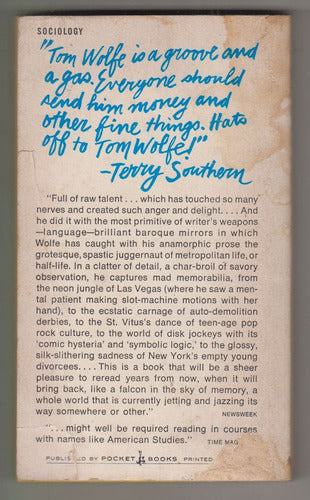 SOCIOLOGY
"Tom Wolfe is a groove and
a gas. Everyone should
send him money and
other fine things. Hats
off to Tom Wolfe!"
-Terry Southern
"Full of raw talent . . . which has touched so many
nerves and created such anger and delight. . . . And
he did it with the most primitive of writer's weapons
—language—brilliant baroque mirrors in which
Wolfe has caught with his anamorphic prose the
grotesque, spastic juggernaut of metropolitan life, or
half-life. In a clatter of detail, a char-broil of savory
observation, he captures mad memorabilia, from
the neon jungle of Las Vegas (where he saw a men-
tal patient making slot-machine motions with her
hand), to the ecstatic carnage of auto-demolition
derbies, to the St. Vitus's dance of teen-age pop
rock culture, to the world of disk jockeys with its
'comic hysteria' and 'symbolic logic,' to the glossy,
silk-slithering sadness of New York's empty young
divorcees. . . . This is a book that will be a sheer
pleasure to reread years from now, when it will
bring back, like a falcon in the sky of memory, a
whole world that is currently jetting and jazzing its
way somewhere or other." NEWSWEEK
". . . might well be required reading in courses
with names like American Studies." TIME MAG
PUBLISHED BY POCKET BOOKS, PRINTED